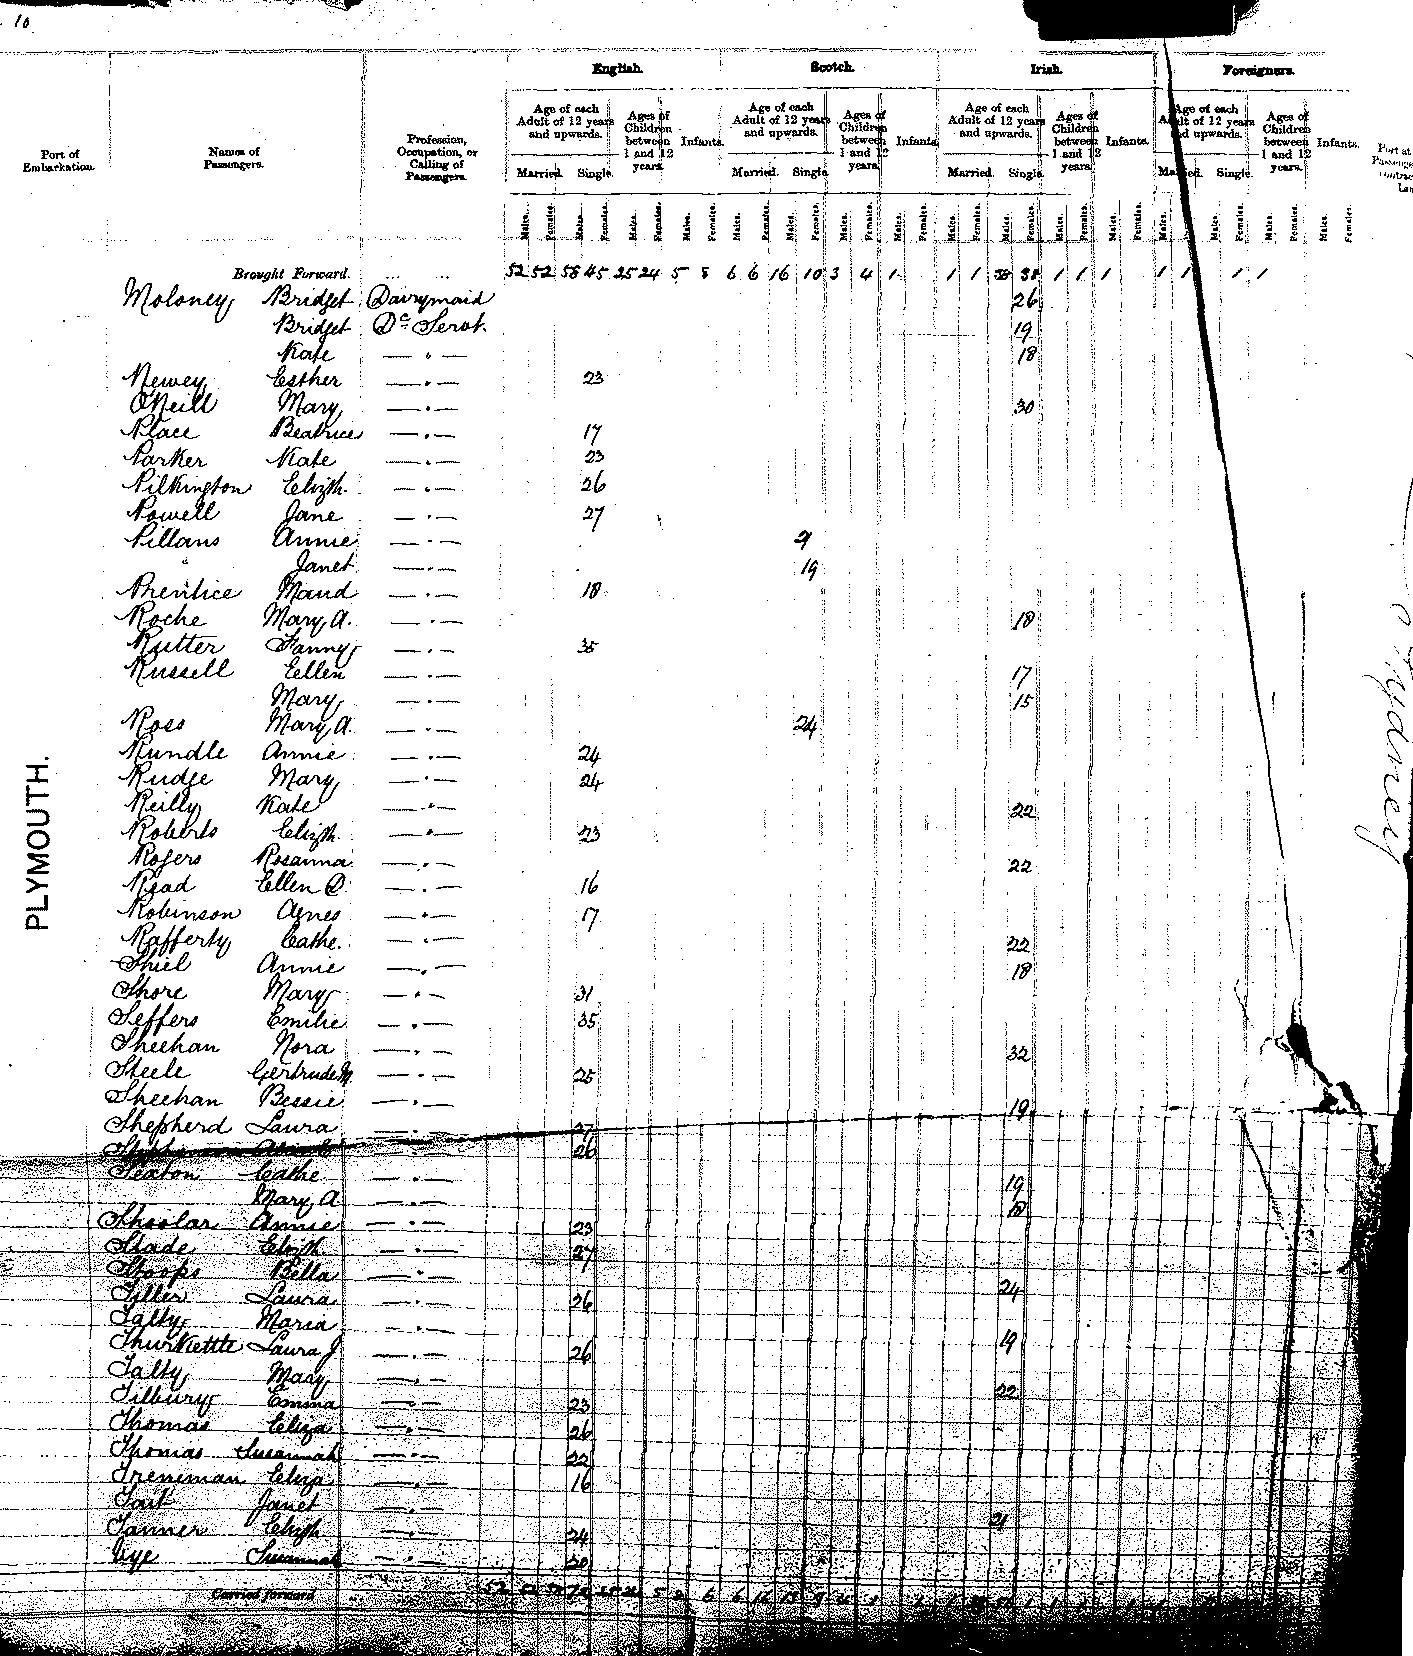 10
English. Scotch. Irish. Foreigners.
Port of Embarkation. Names of Passengers. Profession, Occupation, or Calling of Passengers. Age of each Adult of 12 years and upwards. Ages of Children between 1 and 12 years. Infants. Age of each Adult of 12 years and upwards. Ages of Children between 1 and 12 years. Infants. Age of each Adult of 12 years and upwards. Ages of Children between 1 and 12 years. Infants. Age of each Adult of 12 years and upwards. Ages of Children between 1 and 12 years. Infants.
Married. Single. Married. Single. Married. Single. Married. Single.
Males. Females. Males. Females. Males. Females. Males. Females. Males. Females. Males. Females. Males. Females. Males. Females. Males. Females. Males. Females. Males. Females. Males. Females. Males. Females. Males. Females. Males. Females. Males. Females.
Brought Forward. ... ... 52 52 58 45 25 24 5 8 6 6 16 10 3 4 1 1 1 38 1 1 1 1 1 1 1
Moloney Bridget Dairymaid 26
Bridget Do Servt. 19
Kate — " — 18
Newey Esther — " — 23
O'Neill Mary — " — 30
Place Beatrice — " — 17
Parker Kate — " — 23
Pilkington Elizth. — " — 26
Powell Jane — " — 27
Pillans Annie — " —
" Janet — " — 19
Prentice Maud — " — 18
Roche Mary A. — " — 18
Rutter Fanny — " — 35
Russell Ellen — " — 17
Mary — " — 15
Ross Mary A. — " — 24
Rundle Annie — " — 24
Rudge Mary — " — 24
Reilly Kate — " — 22
Roberts Elizth. — " — 23
Rogers Rosanna — " — 22
Read Ellen D. — " — 16
Robinson Agnes — " — 17
Rafferty Cathe. — " — 22
Shiel Annie — " — 18
Shore Mary — " — 31
Seffers Emilie — " — 35
Sheehan Nora — " — 32
Steele Gertrude M. — " — 25
Sheehan Bessie — " — 19
Shepherd Laura — " — 27
26
Seaton Cathe — " — 19
Mary A — " — 18
Shoolar Annie — " — 23
Slade Elizth — " — 27
Stoops Bella — " — 24
Tiller Laura — " — 26
Talty Maria — " — 19
Thurkettle Laura J — " — 26
Talty Mary — " — 22
Tilbury Emma — " — 23
Thomas Eliza — " — 26
Thomas Susannah — " — 22
Treniman Eliza — " — 16
Tait Janet — " — 21
Tanner Elizth — " — 24
Vye Susannah — " — 20
Carried forward
PLYMOUTH.
Sydney